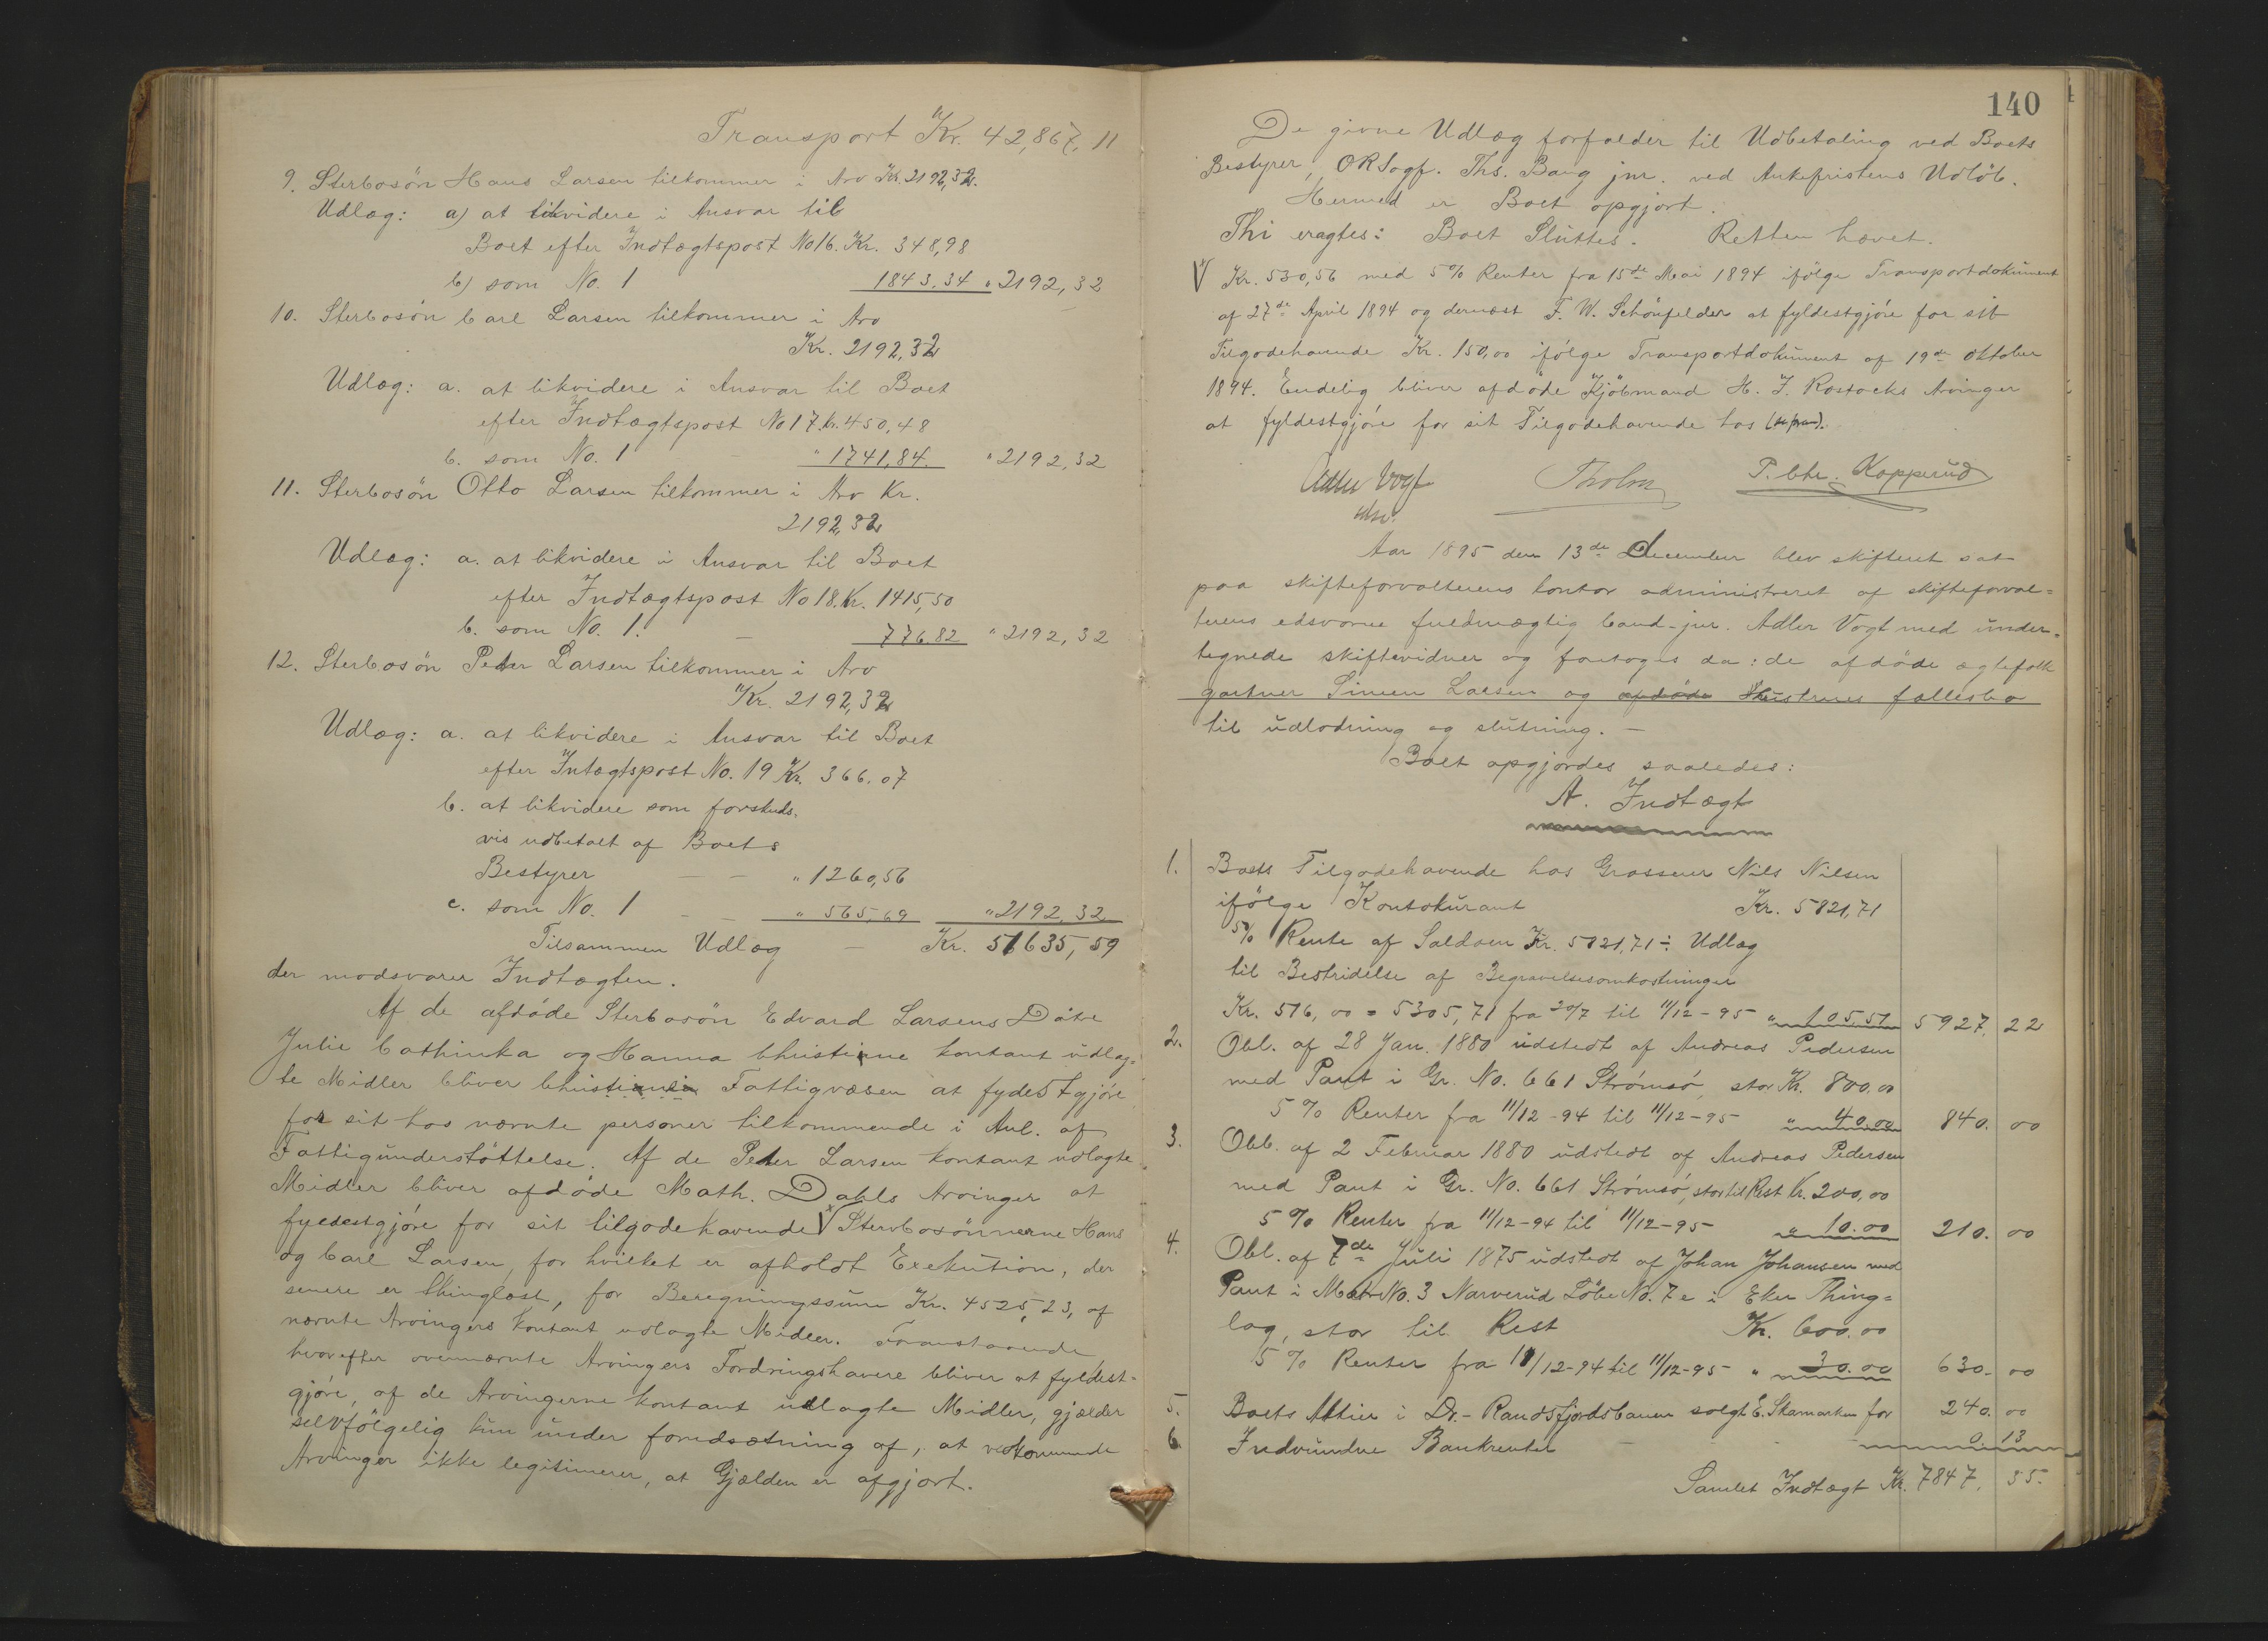 Transport Kr. 42,867,11
9. Sterbosön Hans Larsen tilkommer i Arv Kr. 2192,32.
Udlæg: a) at likvidere i Ansvar til
Boet efter Indtægtspost No 16. Kr. 348,98
b) som No. 1 1843.34 " 2192,32
10. Sterbosön Carl Larsen tilkommer i Arv
Kr. 2192,32
Udlæg: a. at likvidere i Ansvar til Boet
efter Indtægtspost No 17. Kr. 450,48
b. som No. 1 - " 1741,84. " 2192,32
11. Sterbosön Otto Larsen tilkommer i Arv Kr.
2192,32
Udlæg: a. at likvidere i Ansvar til Boet
efter Indtægtspost No 18. Kr. 1415,50
b. som No. 1. - 776,82 " 2192,32
12. Sterbosön Peter Larsen tilkommer i Arv
Kr. 2192,32
Udlæg: a. at likvidere i Ansvar til Boet
efter Intægtspost No. 19 Kr. 366.07
b. at likvidere som forskuds-
vis udbetalt af Boets
Bestyrer - - " 1260,56
c. som No. 1 - - " 565,69 " 2192,32
Tilsammen Udlæg - Kr. 51635,59
der modsvarer Indtægten.
Af de afdöde Sterbosön Edvard Larsens Dötre
Julie Cathinka og Hanna Christine kontant udlag-
te Midler bliver Christiania Fattigvæsen at fydestgjöre
for sit hos nævnte personer tilkommende i Anl. af
Fattigunderstöttelse. Af de Peter Larsen kontant udlagte
Midler bliver afdöde Math. Dahls Arvinger at
fyldestgjöre for sit tilgodehavende V Stervbosönnerne Hans
og Carl Larsen, for hvilket er afholdt Exekution, der
senere er thinglæst, for Beregningssum Kr. 4525,23, af
nævnte Arvingers kontant udlagte Midler. Foranstaaende
hvorefter ovennævnte Arvingers Fordringshavere bliver at fyldest-
gjöre, af de Arvingerne kontant udlagte Midler, gjælder
selvfölgelig kun under forudsætning af, at vedkommende
Arvinger ikke legitimerer, at Gjælden er afgjort.
140
De givne Udlæg forfalder til Udbetaling ved Boets
Bestyrer, ORSagf. Ths. Bang jnr. ved Ankefristens Udlöb.
Hermed er Boet opgjort.
Thi eragtes: Boet Sluttes. Retten hævet.
V Kr. 530,56 med 5% Renter fra 15de Mai 1894 ifölge Transportdokument
af 27de April 1894 og dernæst F. W. Schönfelder at fyldestgjöre for sit
Tilgodehavende Kr. 150,00 ifölge Transportdokument af 19de Oktober
1894. Endelig bliver afdöde Kjöbmand H. J. Rostocks Arvinger
at fyldestgjöre for sit Tilgodehavende hos
Adler Vogt Tholm P. Chr. Kopperud
Aar 1895 den 13de December blev skifteret sat
paa skifteforvalterens kontor administreret af skifteforval-
terens edsvorne fuldmægtig Cand-jur. Adler Vogt med under-
tegnede skiftevidner og foretoges da: de afdöde ægtefolk
gartner Simen Larsen og afdöde Hustrues fællesbo
til udlodning og slutning. -
Boet opgjordes saaledes:
A. Indtægt
1. Boets Tilgodehavende hos Grosserer Nils Nilsen
ifölge Kontokurant Kr. 5821,71
5% Rente af Saldoen Kr. 5821,71 ÷ Udlæg
til Bestridelse af Begravelsesomkostninger
Kr. 516,00 = 5305,71 fra 20/7 til 11/12-95 " 105,51 5927,22
2. Obl. af 28 Jan. 1880 udstedt af Andreas Pedersen
med Pant i Gr. No. 661 Strömsö, stor Kr. 800.00
5% Renter fra 11/12-94 til 11/12-95 " 40.00 840.00
3. Obl. af 2 Februar 1880 udstedt af Andreas Pedersen
med Pant i Gr. No. 661 Strömsö, stor til Rest Kr. 200,00
5% Renter fra 11/12-94 til 11/12-95 " 10.00 210.00
4. Obl. af 7de Juli 1875 udstedt af Johan Johansen med
Pant i Matr No. 3 Narverud Löbe No. 7e i Eker Thing-
lag, stor til Rest Kr. 600.00
5% Renter fra 11/12-94 til 11/12-95 " 30.00 630.00
5. Boets Aktier i Dr.- Randsfjordsbanen solgt E. Skamarken for 240.00
6. Indvundne Bankrenter - - 0.13
Samlet Indtægt Kr. 7847,35.